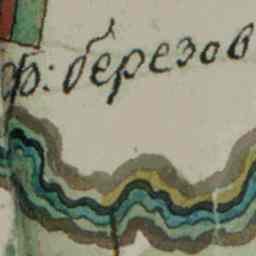 ф: березов